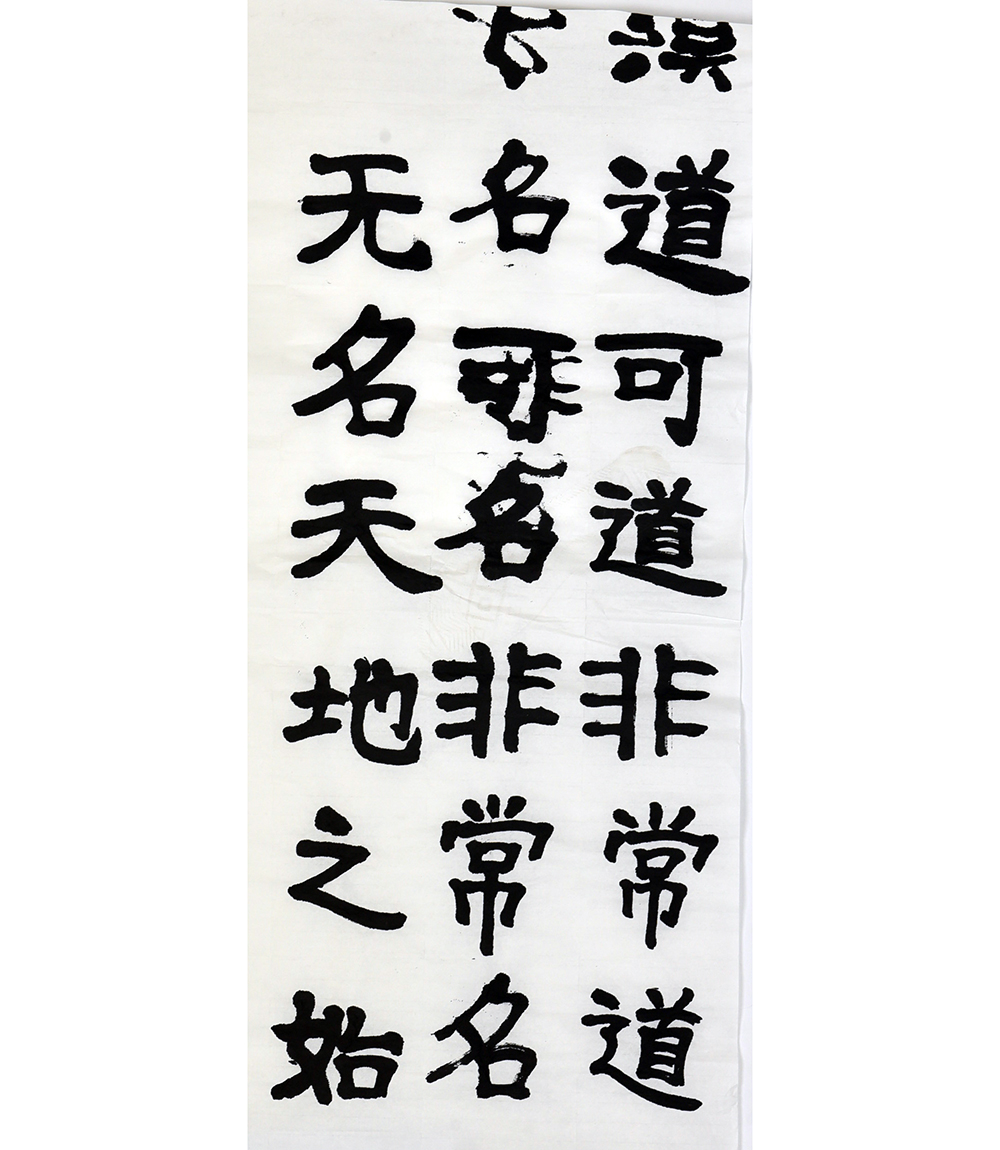 道可道非常道
名可名非常名
无名天地之始